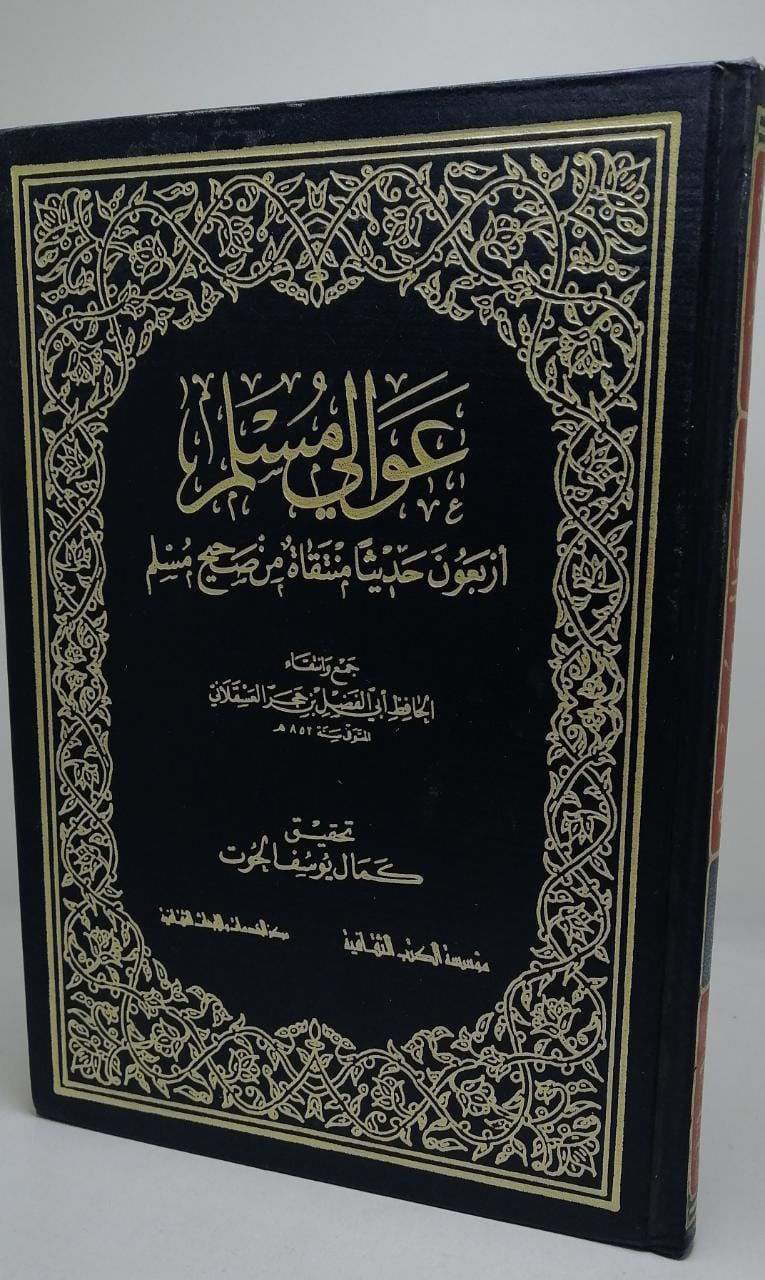 عَوَالِي مُسْلِم
أَرْبَعُونَ حَدِيثًا مُنْتَقَاةٌ مِنْ صَحِيحِ مُسْلِم
جَمْعُ وَانتِقَاء
الحَافِظِ أَبِي الفَضْلِ بْنِ حَجَرِ العَسْقَلَانِي
المتَوَفّى سَنَة ٨٥٢ هـ
تحقيق
كَمَال يُوسُف الحُوت
مؤسسة الكتب الثقافية
مركز الخدمات والأبحاث الثقافية